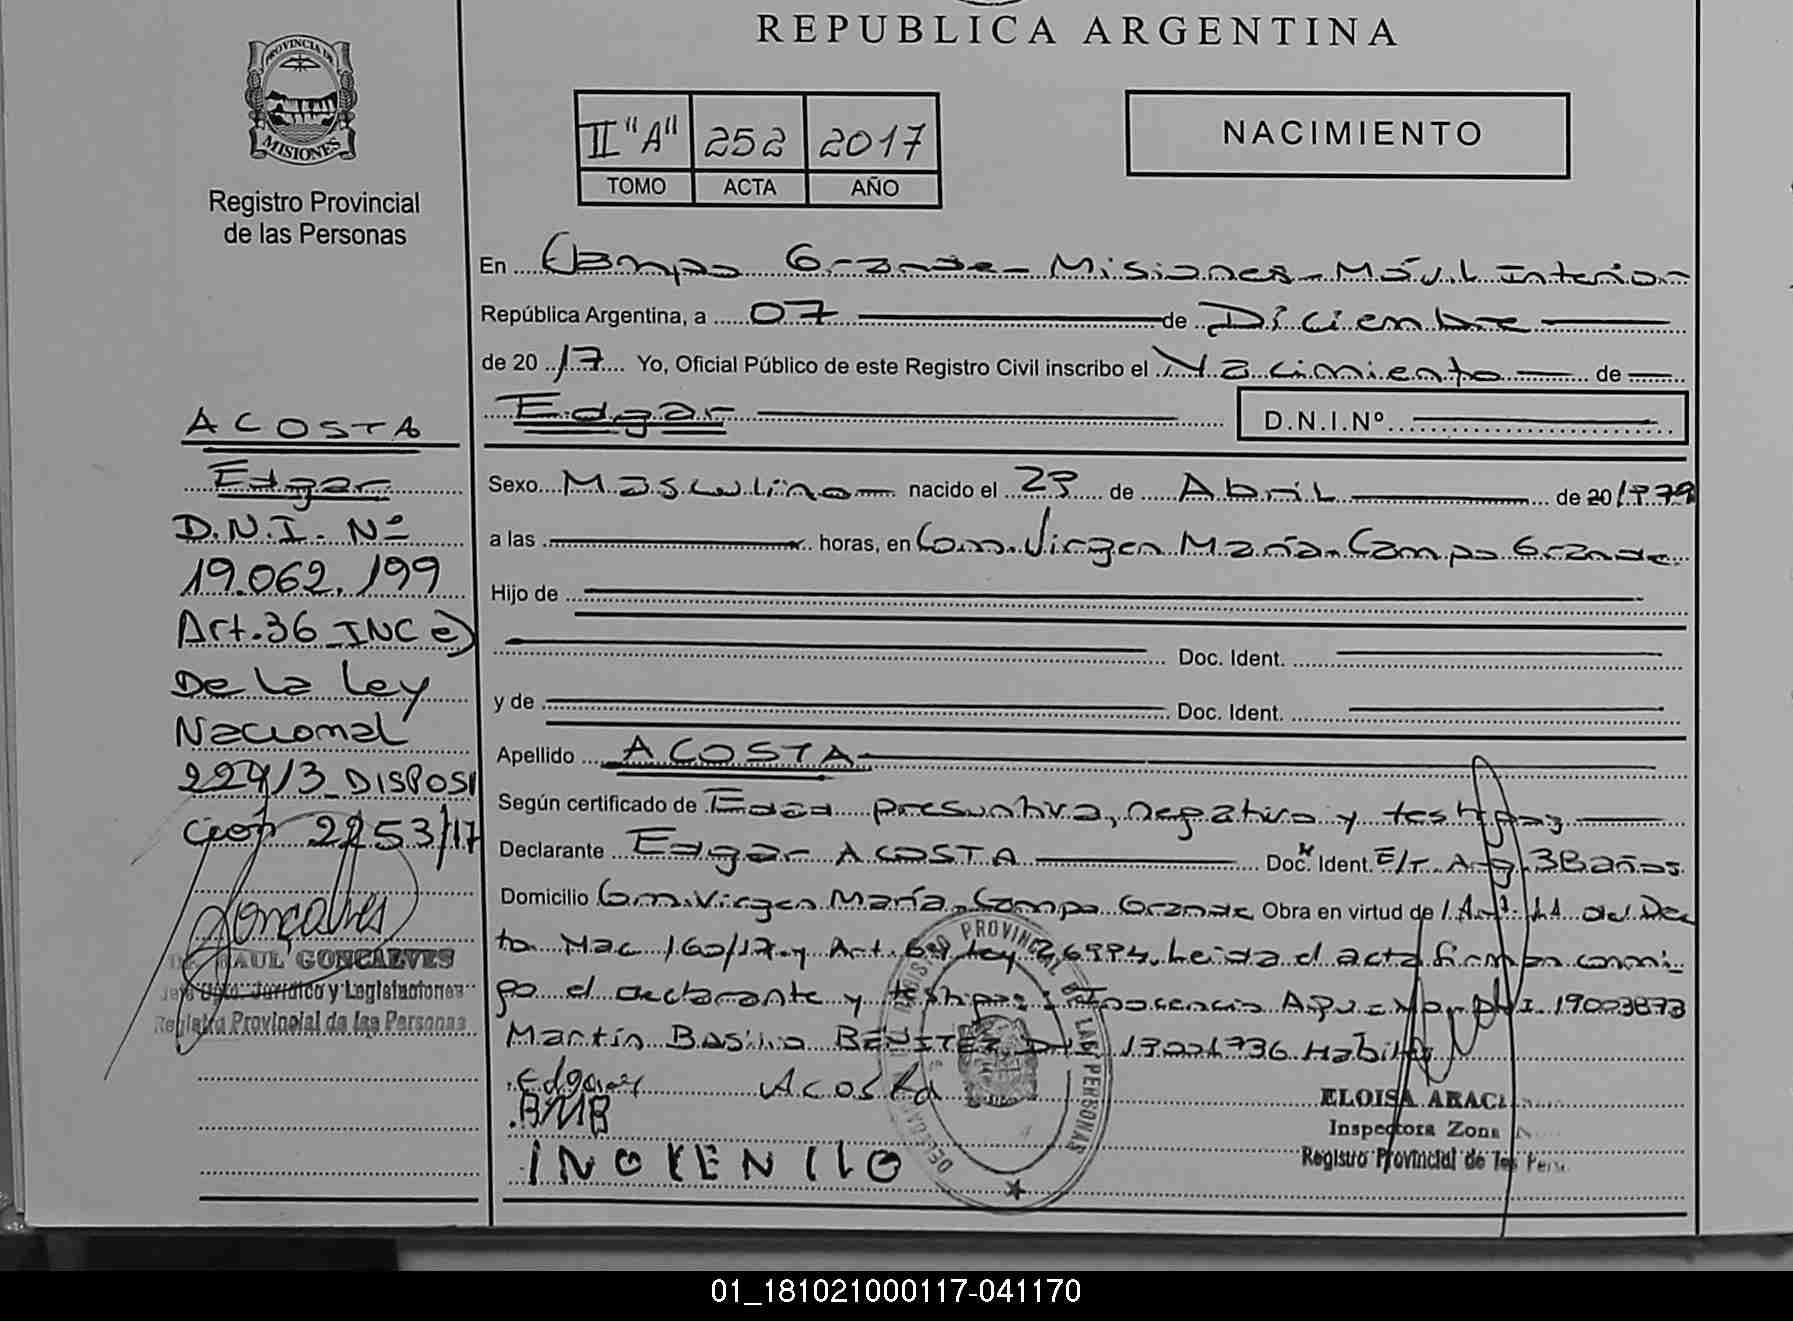 REPUBLICA ARGENTINA
PROVINCIA DE
MISIONES
Registro Provincial
de las Personas
II "A" 252 2017
TOMO ACTA AÑO
NACIMIENTO
En Campo Grande - Misiones - Móvil Interior
República Argentina, a 07 de Diciembre
de 2017 Yo, Oficial Público de este Registro Civil inscribo el Nacimiento de
Edgar D.N.I.Nº
Sexo Masculino nacido el 29 de Abril de 20 1979
a las horas, en Com. Virgen María - Campo Grande
Hijo de
Doc. Ident.
y de Doc. Ident.
Apellido ACOSTA
Según certificado de Edad presuntiva, negativo y testigos
Declarante Edgar ACOSTA Doc. Ident. E/T. Arg. 38 años.
Domicilio Com. Virgen María - Campo Grande Obra en virtud de / Art. 11 del Dec
to Nac 160/17 y Art. 69 Ley 26994. Leida el acta firman conmi
go el declarante y testigos: Inocencio DNI 19003873
Martín Basilio BENITEZ DNI Habilit
Edgar Acosta
BMB
INOCENCIO
ELOISA ARAC
Inspectora Zona
Registro Provincial de las Pers
REGISTRO PROVINCIAL DE LAS PERSONAS
ACOSTA
Edgar
D.N.I. Nº
19.062.199
Art. 36 INC e)
De la Ley
Nacional
DISPOSI
cion 2253/17
Goncalves
RAUL GONCALVES
Jefe Dpto. Jurídico y Legislaciones
Registro Provincial de las Personas
01_181021000117-041170